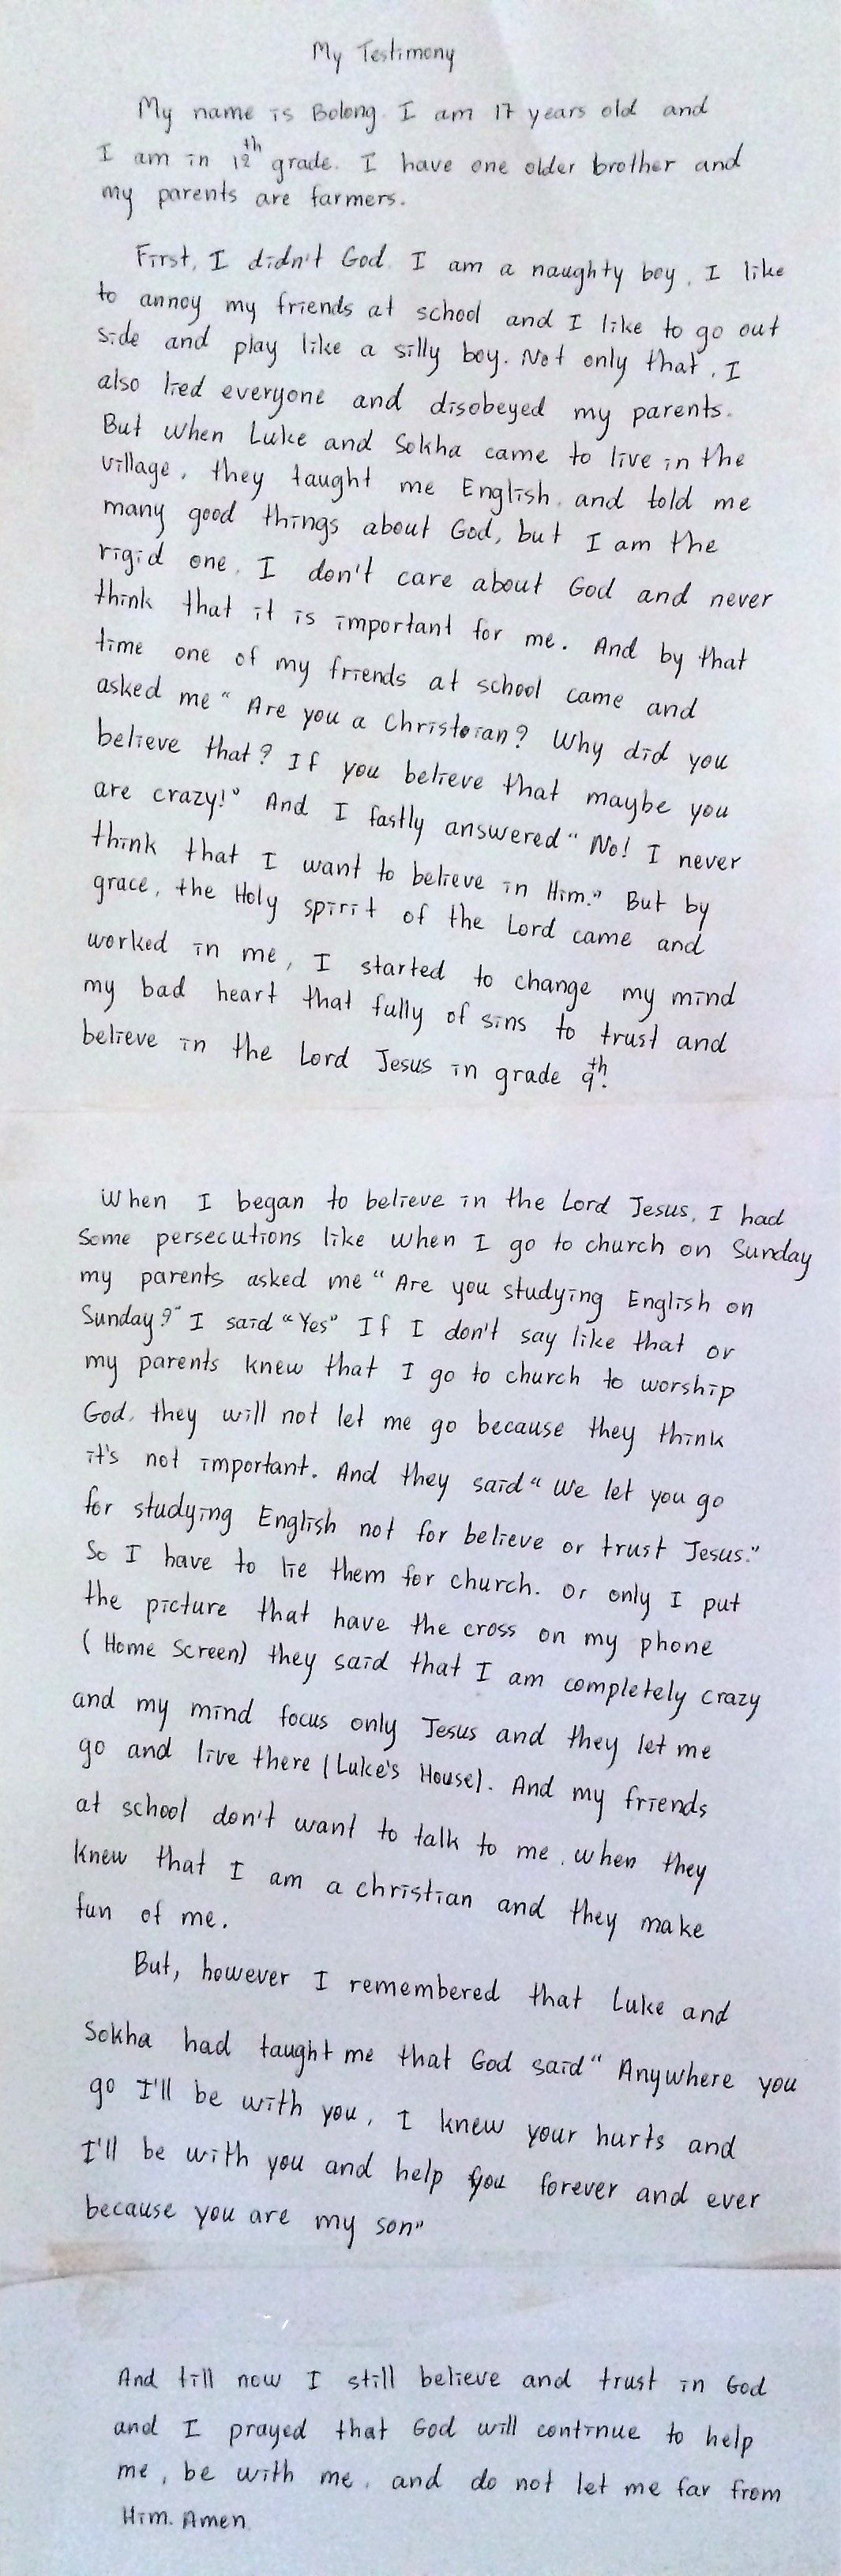 My Testimony
My name is Bolong. I am 17 years old and
I am in 12th grade. I have one older brother and
my parents are farmers.
First, I didn't God. I am a naughty boy, I like
to annoy my friends at school and I like to go out
side and play like a silly boy. Not only that, I
also lied everyone and disobeyed my parents.
But when Luke and Sokha came to live in the
village, they taught me English, and told me
many good things about God, but I am the
rigid one, I don't care about God and never
think that it is important for me. And by that
time one of my friends at school came and
asked me “Are you a Christian? Why did you
believe that? If you believe that maybe you
are crazy!” And I fastly answered “No! I never
think that I want to believe in Him.” But by
grace, the Holy spirit of the Lord came and
worked in me, I started to change my mind
my bad heart that fully of sins to trust and
believe in the Lord Jesus in grade 9th.
When I began to believe in the Lord Jesus, I had
Some persecutions like when I go to church on Sunday
my parents asked me “Are you studying English on
Sunday?” I said “Yes” If I don't say like that or
my parents knew that I go to church to worship
God, they will not let me go because they think
it's not important. And they said “We let you go
for studying English not for believe or trust Jesus.”
So I have to lie them for church. Or only I put
the picture that have the cross on my phone
(Home Screen) they said that I am completely crazy
and my mind focus only Jesus and they let me
go and live there (Luke's House). And my friends
at school don't want to talk to me, when they
knew that I am a christian and they make
fun of me.
But, however I remembered that Luke and
Sokha had taught me that God said “Anywhere you
go I'll be with you, I knew your hurts and
I'll be with you and help you forever and ever
because you are my son”
And till now I still believe and trust in God
and I prayed that God will continue to help
me, be with me, and do not let me far from
Him. Amen